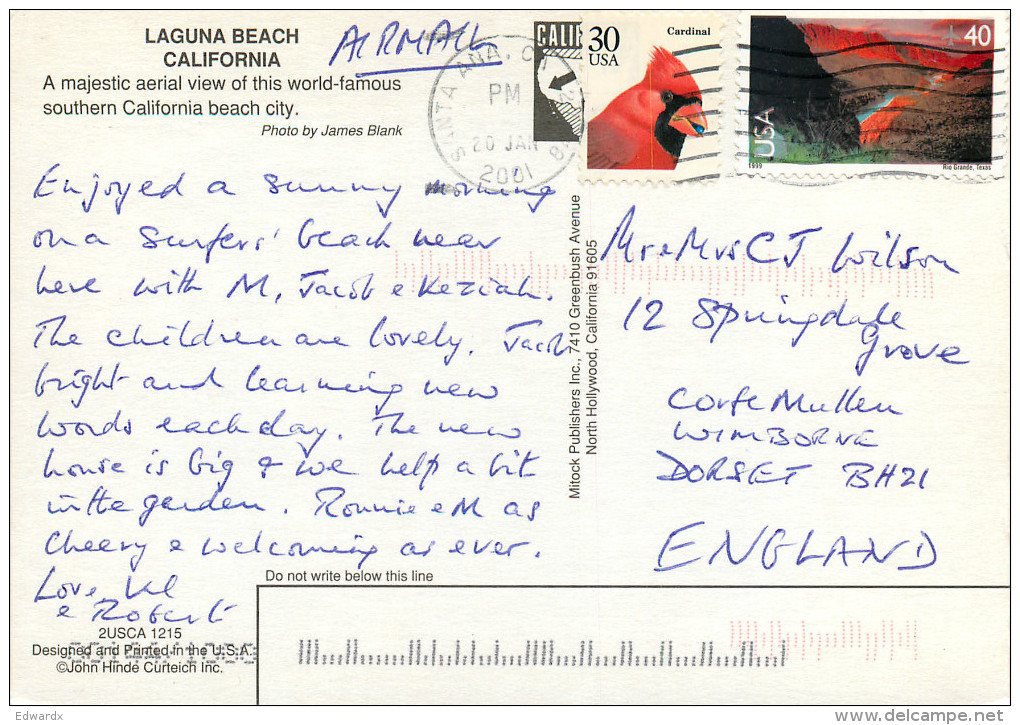 LAGUNA BEACH
CALIFORNIA
A majestic aerial view of this world-famous
southern California beach city.
Photo by James Blank
AIRMAIL
SANTA ANA, CA
PM
20 JAN
2001
CALIF
30
USA
Cardinal
40
USA
1999
Rio Grande, Texas
Enjoyed a sunny morning
on a surfers' beach near
here with M, Jacob & Keziah.
The children are lovely. Jacob
bright and learning new
words each day. The new
house is big & we help a bit
in the garden. Ronnie & M as
cheery & welcoming as ever.
Love,
& Robert
Mitock Publishers Inc., 7410 Greenbush Avenue
North Hollywood, California 91605
Mr & Mrs C J Wilson
12 Springdale
Grove
Corfe Mullen
WIMBORNE
DORSET BH21
ENGLAND
Do not write below this line
2USCA 1215
Designed and Printed in the U.S.A.
©John Hinde Curteich Inc.
Edwardx
delcampe.net